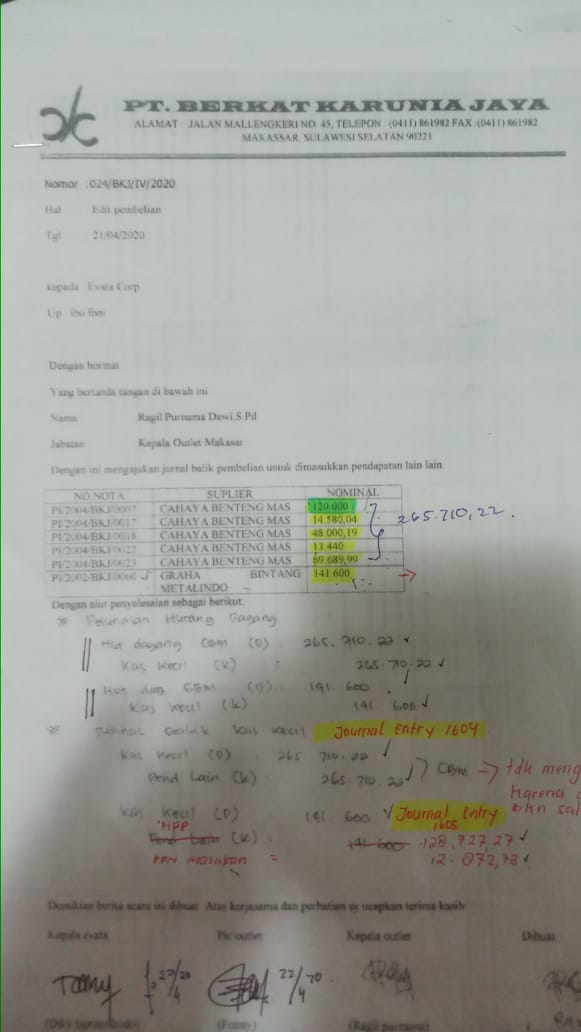 PT. BERKAT KARUNIA JAYA
ALAMAT JALAN MALLENGKERI NO. 45, TELEPON (0411) 861982 FAX :(0411) 861982
MAKASSAR, SULAWESI SELATAN 90221
Nomor :024/BKJ/IV/2020
Hal Edit pembelian
Tgl 21/04/2020
kepada Evata Corp
Up ibu foni
Dengan hormat
Yang bertanda tangan di bawah ini
Nama Ragil Purnama Dewi,S.Pd
Jabatan Kepala Outlet Makasar
Dengan ini mengajukan jurnal balik pembelian untuk dimasukkan pendapatan lain lain
NO NOTA SUPLIER NOMINAL
PI/2004/BKJ/0007 CAHAYA BENTENG MAS 120.000
PI/2004/BKJ/0017 CAHAYA BENTENG MAS 14.580,04
PI/2004/BKJ/0018 CAHAYA BENTENG MAS 48.000,19
PI/2004/BKJ/0022 CAHAYA BENTENG MAS 13.440
PI/2004/BKJ/0023 CAHAYA BENTENG MAS 69.689,99
265.710,22.
PI/2002/BKJ/0060 GRAHA BINTANG METALINDO 141.600
Dengan alur penyelesaian sebagai berikut.
Pelunasan Hutang Dagang
Hut dagang CBM (D) : 265.710.22
Kas kecil (K) : 265.710.22
Hut dag GBM (D) : 141.600
Kas kecil (K) 141.600
Jurnal Balik Kas Kecil Journal Entry 1604
Kas kecil (D) : 265.710.22
Pend Lain (K) : 265.710.22 CBM → tdk meng
Karena
Kas kecil (D) 141.600 Journal Entry 1605 bhn sal
HPP
Pend Lain (K) : 141.600 128.727,27
PPN Masukan = 12.872,73
Demikian berita acara ini dibuat. Atas kerjasama dan perhatian sy ucapkan terima kasih
Kepala evata Pic outlet Kepala outlet Dibuat
Tomy 22/20 4 22/20 4
(Fonny) (Ragil purnama)